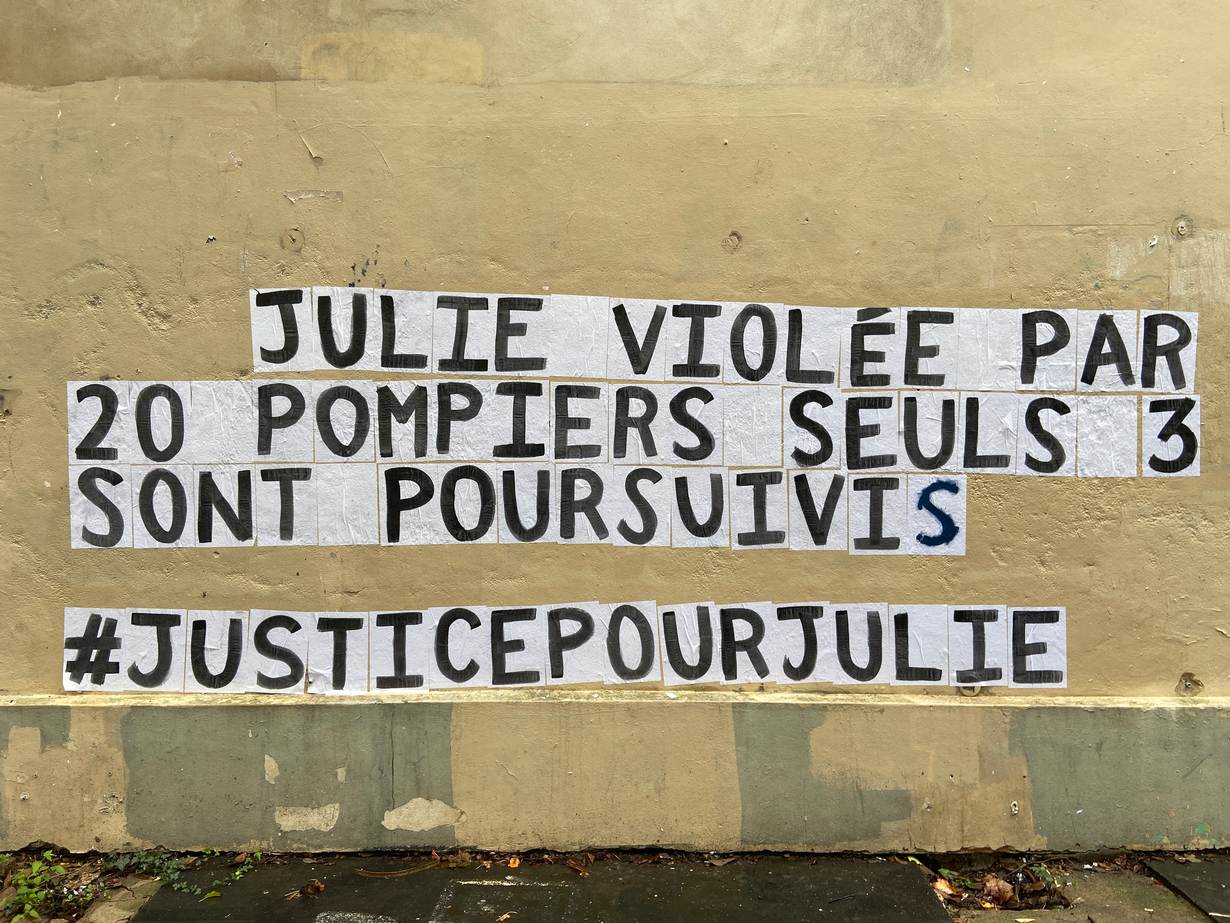 JULIE VIOLÉE PAR
20 POMPIERS SEULS 3
SONT POURSUIVIS
#JUSTICEPOURJULIE